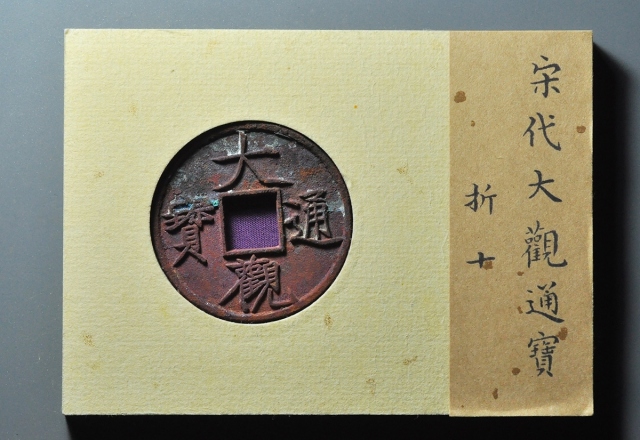 宋代大觀通寶
折十
大觀通寶